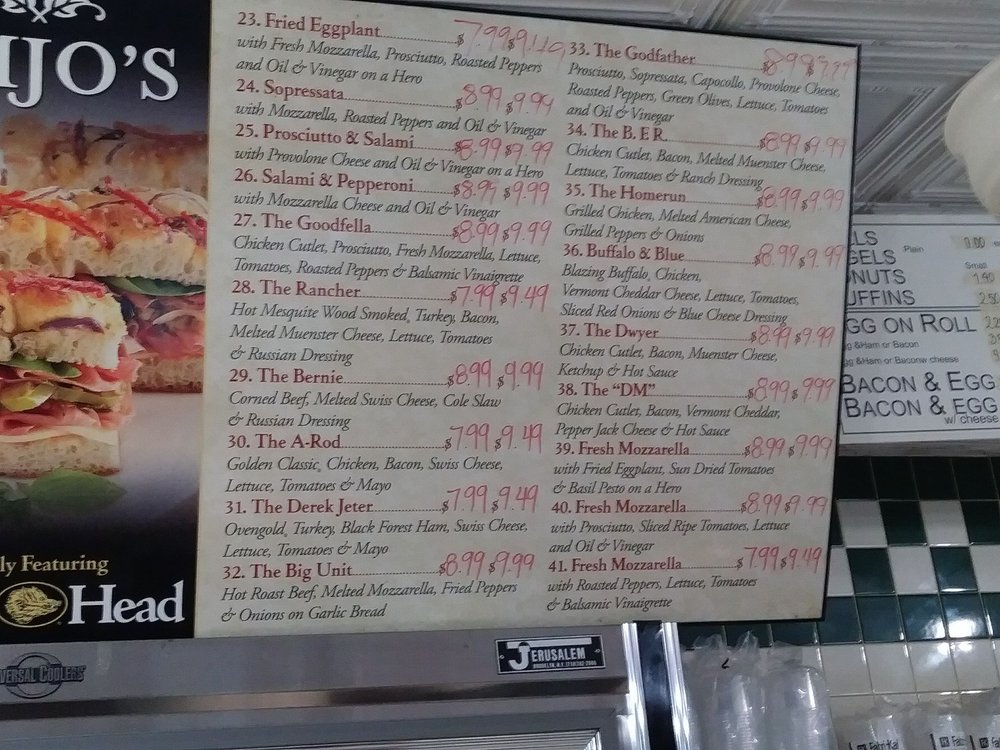 IJO'S
ly Featuring
Head
23. Fried Eggplant $7.99 $9.49
with Fresh Mozzarella, Prosciutto, Roasted Peppers
and Oil & Vinegar on a Hero
24. Sopressata $8.99 $9.99
with Mozzarella, Roasted Peppers and Oil & Vinegar
25. Prosciutto & Salami $8.99 $9.99
with Provolone Cheese and Oil & Vinegar on a Hero
26. Salami & Pepperoni $8.99 $9.99
with Mozzarella Cheese and Oil & Vinegar
27. The Goodfella $8.99 $9.99
Chicken Cutlet, Prosciutto, Fresh Mozzarella, Lettuce,
Tomatoes, Roasted Peppers & Balsamic Vinaigrette
28. The Rancher $7.99 $9.49
Hot Mesquite Wood Smoked® Turkey, Bacon,
Melted Muenster Cheese, Lettuce, Tomatoes
& Russian Dressing
29. The Bernie $8.99 $9.99
Corned Beef, Melted Swiss Cheese, Cole Slaw
& Russian Dressing
30. The A-Rod $7.99 $9.49
Golden Classic® Chicken, Bacon, Swiss Cheese,
Lettuce, Tomatoes & Mayo
31. The Derek Jeter $7.99 $9.49
Ovengold® Turkey, Black Forest Ham, Swiss Cheese,
Lettuce, Tomatoes & Mayo
32. The Big Unit $8.99 $9.99
Hot Roast Beef, Melted Mozzarella, Fried Peppers
& Onions on Garlic Bread
33. The Godfather $8.99 $9.99
Prosciutto, Sopressata, Capocollo, Provolone Cheese,
Roasted Peppers, Green Olives, Lettuce, Tomatoes
and Oil & Vinegar
34. The B.E.R. $8.99 $9.99
Chicken Cutlet, Bacon, Melted Muenster Cheese,
Lettuce, Tomatoes & Ranch Dressing
35. The Homerun $8.99 $9.99
Grilled Chicken, Melted American Cheese,
Grilled Peppers & Onions
36. Buffalo & Blue $8.99 $9.99
Blazing Buffalo® Chicken,
Vermont Cheddar Cheese, Lettuce, Tomatoes,
Sliced Red Onions & Blue Cheese Dressing
37. The Dwyer $8.99 $9.99
Chicken Cutlet, Bacon, Muenster Cheese,
Ketchup & Hot Sauce
38. The "DM" $8.99 $9.99
Chicken Cutlet, Bacon, Vermont Cheddar,
Pepper Jack Cheese & Hot Sauce
39. Fresh Mozzarella $8.99 $9.99
with Fried Eggplant, Sun Dried Tomatoes
& Basil Pesto on a Hero
40. Fresh Mozzarella $8.99 $9.99
with Prosciutto, Sliced Ripe Tomatoes, Lettuce
and Oil & Vinegar
41. Fresh Mozzarella $7.99 $9.49
with Roasted Peppers, Lettuce, Tomatoes
& Balsamic Vinaigrette
LS
GELS Plain
NUTS Small
UFFINS 2.50
GG ON ROLL
gg &Ham or Bacon
gg &Ham or Baconw cheese
BACON & EGG
BACON & EGG
w/ cheese
VERSAL COOLERS
JERUSALEM